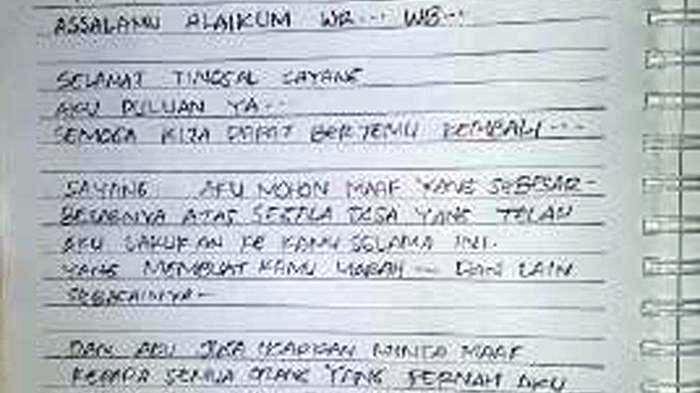 ASSALAMU ALAIKUM WR... WB...
SELAMAT TINGGAL SAYANG
AKU DULUAN YA..
SEMOGA KITA DAPAT BERTEMU KEMBALI...
SAYANG AKU MOHON MAAF YANG SEBESAR-
BESARNYA ATAS SEGALA DOSA YANG TELAH
AKU LAKUKAN KE KAMU SELAMA INI.
YANG MEMBUAT KAMU MARAH... DAN LAIN
SEBAGAINYA-
DAN AKU JUGA UCAPKAN MINTA MAAF
KEPADA SEMUA ORANG YANG PERNAH AKU